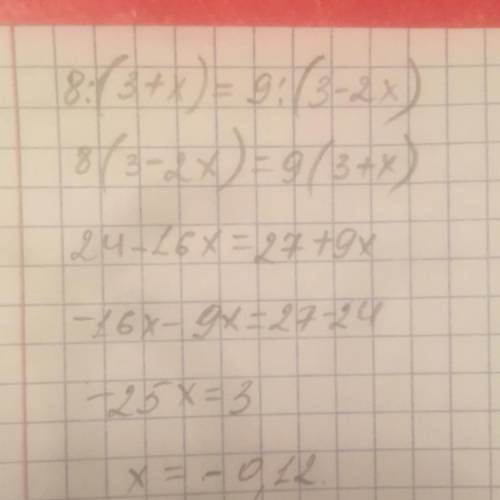 8:(3+x)=9:(3-2x)
8(3-2x)=9(3+x)
24-16x=27+9x
-16x-9x=27-24
-25x=3
x=-0,12.